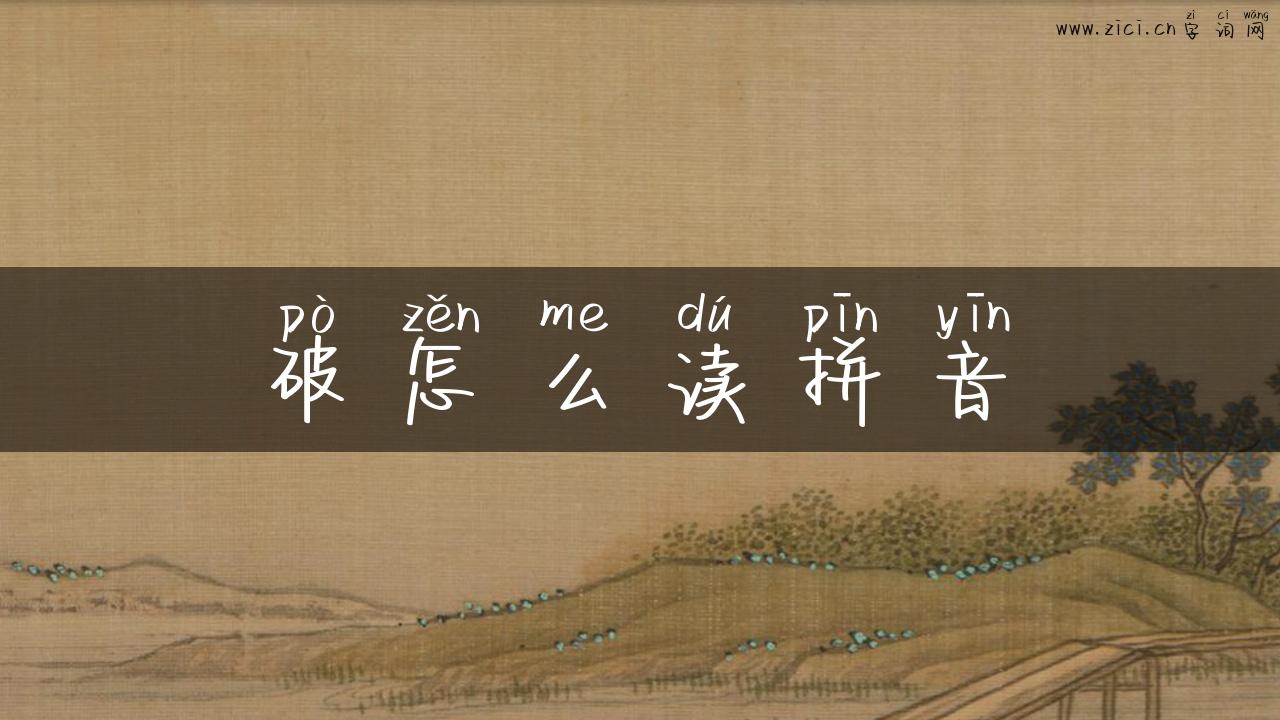 zì cí wǎng
www.zici.cn 字 词 网
pò zěn me dú pīn yīn
破 怎 么 读 拼 音